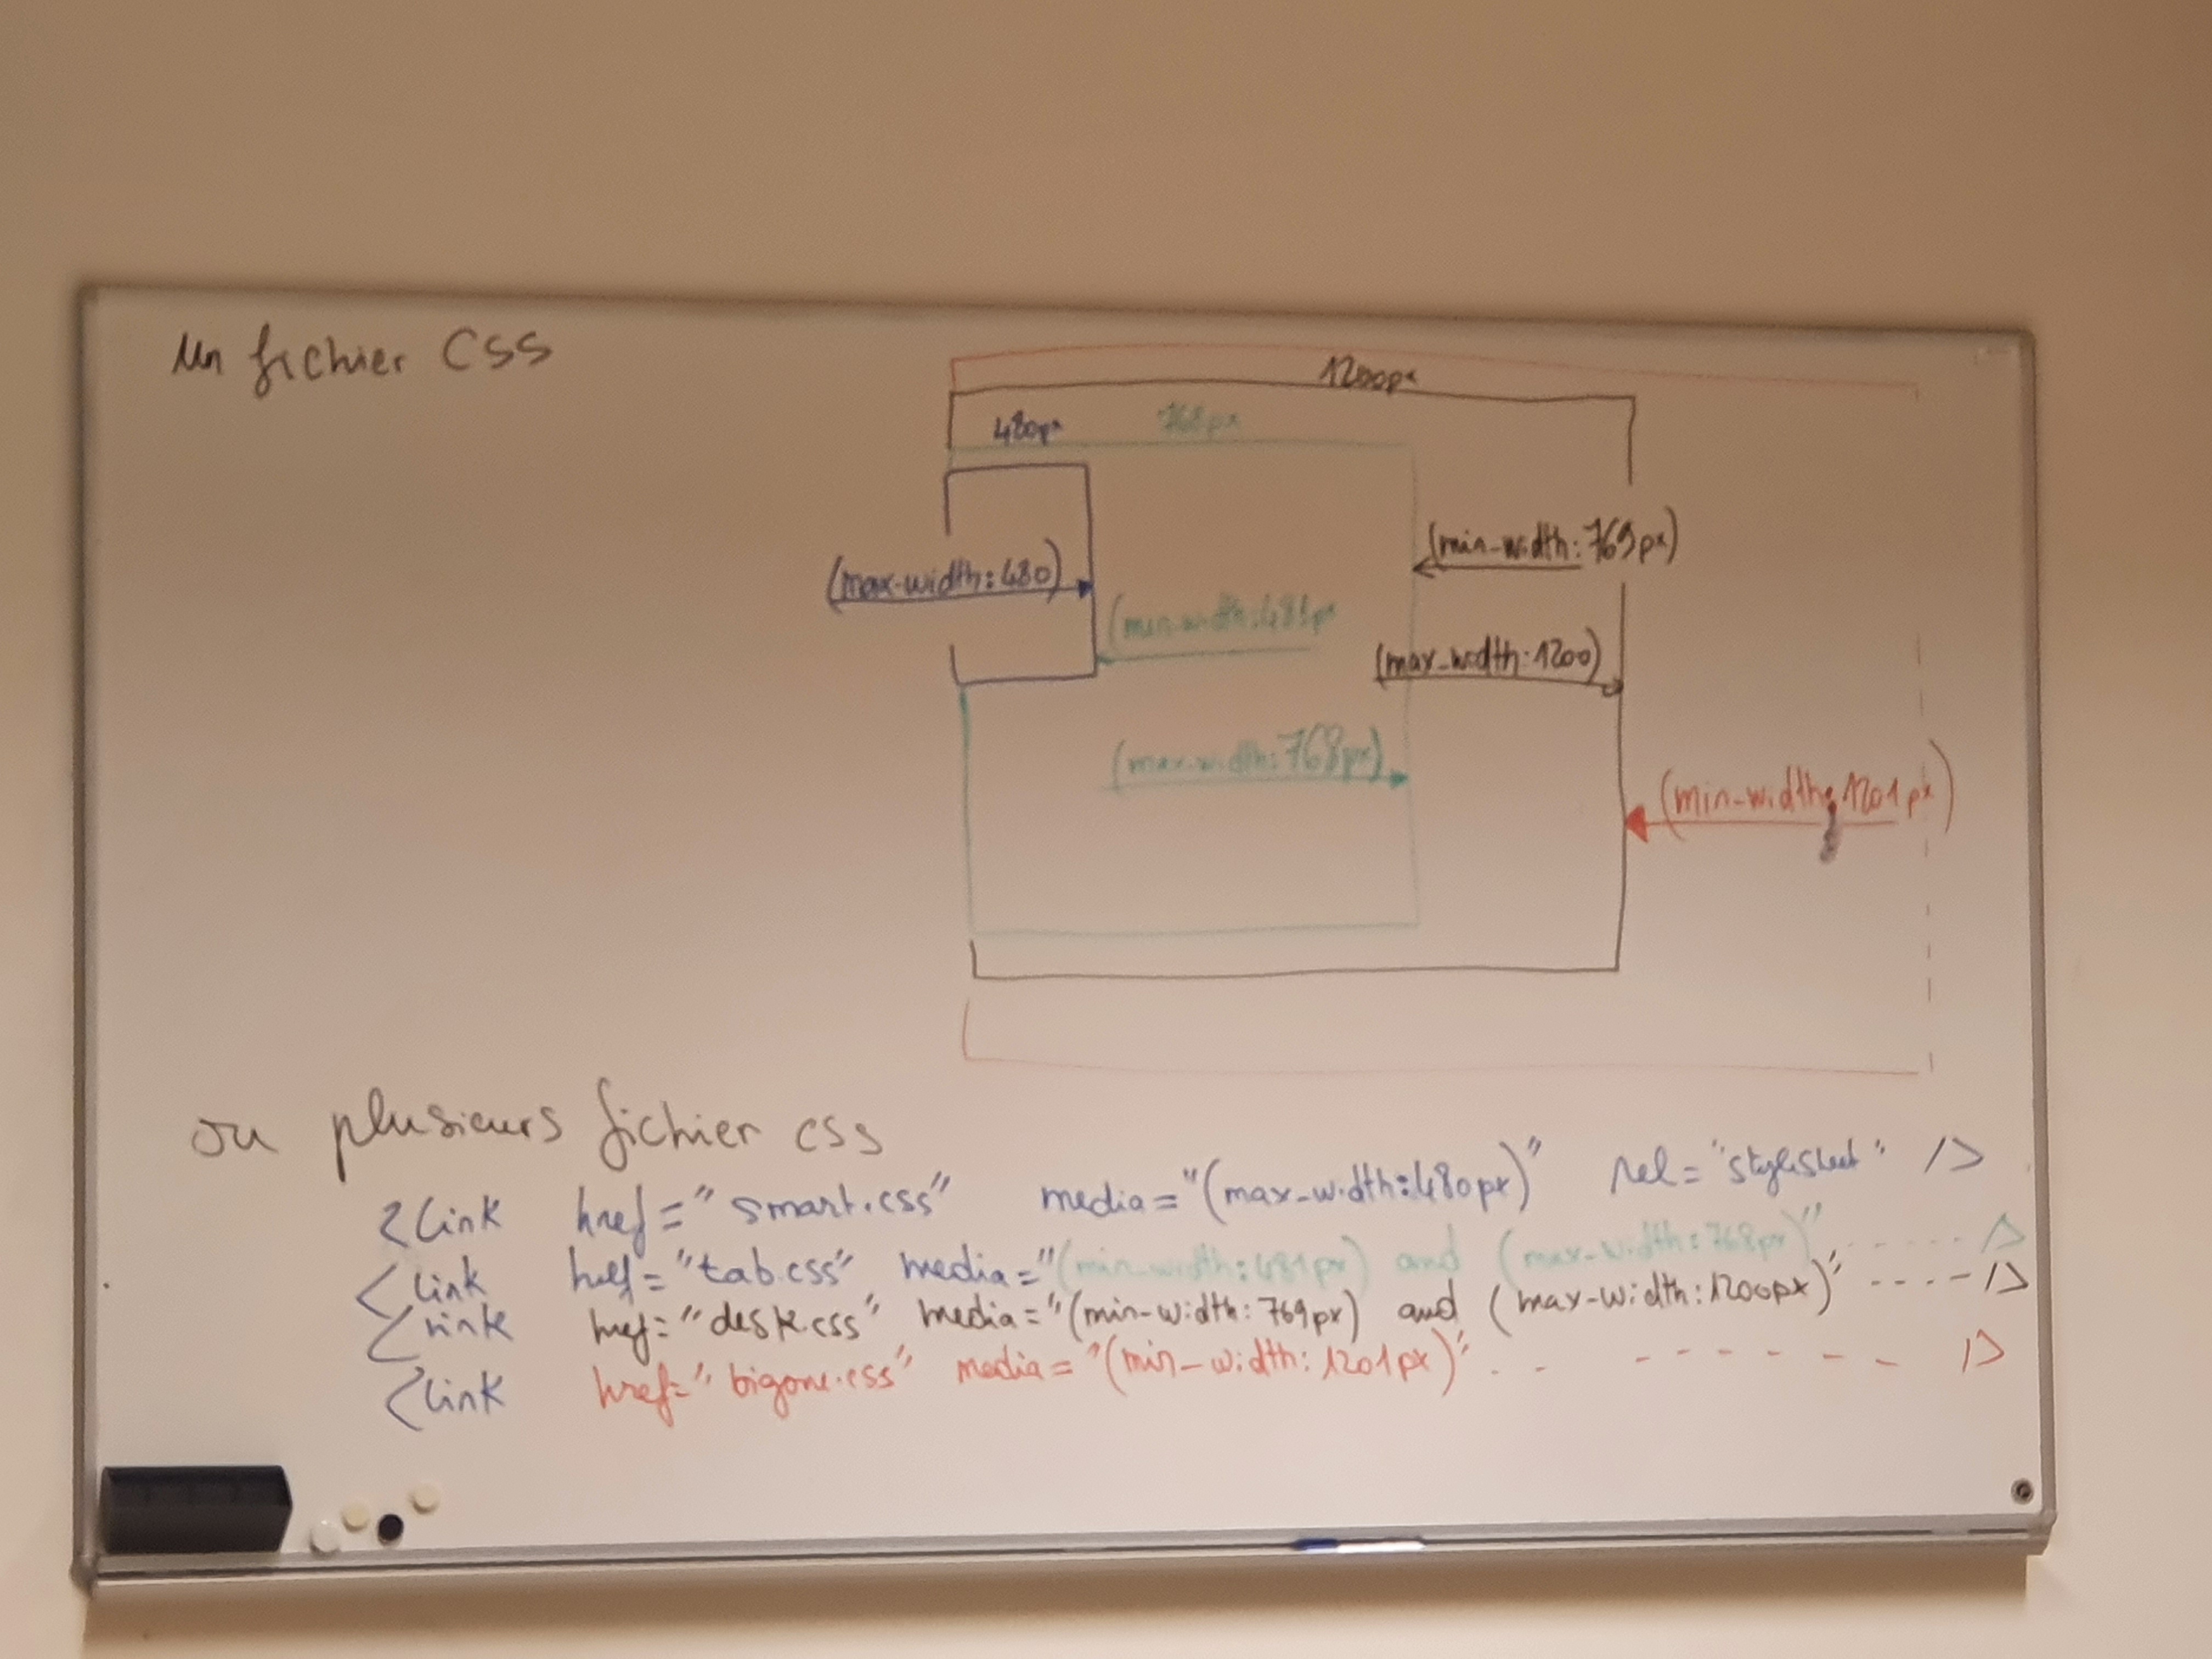 un fichier CSS
1200px
480px 768px
(min-width:769px)
(max-width:480)
(min-width:481px
(max-width:1200)
(max-width:768px)
(min-width:1201px)
ou plusieurs fichier css
<link href="smart.css" media="(max-width:480px)" rel="stylesheet" />
<link href="tab.css" media="(min-width:481px) and (max-width:768px)" ------ />
<link href="desk.css" media="(min-width:769px) and (max-width:1200px)" ---- />
<link href="bigone.css" media="(min-width:1201px)" -- - - - - - - />